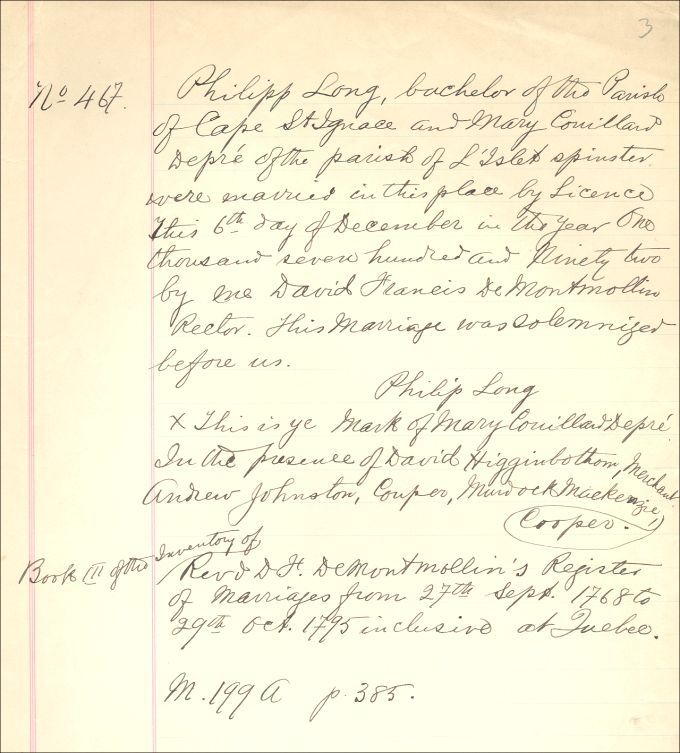 3
No 467.
Philipp Long, bachelor of the Parish
of Cape St Ignace and Mary Couillard
Depré of the parish of L'Islet spinster.
were married in this place by Licence
This 6th day of December in the Year One
thousand seven hundred and Ninety two
by me David Francis De Montmollin
Rector. This Marriage was solemnized
before us.
Philip Long
x This is ye Mark of Mary Couillard Depré
In the presence of David Higginbothom, Merchant
Andrew Johnston, Couper, Murdock Mackenzie,
Cooper.
Book III of the Inventory of
Revd D. F. DeMontmollin's Register
of Marriages from 27th Sept. 1768 to
29th Oct. 1795 inclusive at Quebec.
M. 199 A p. 385.